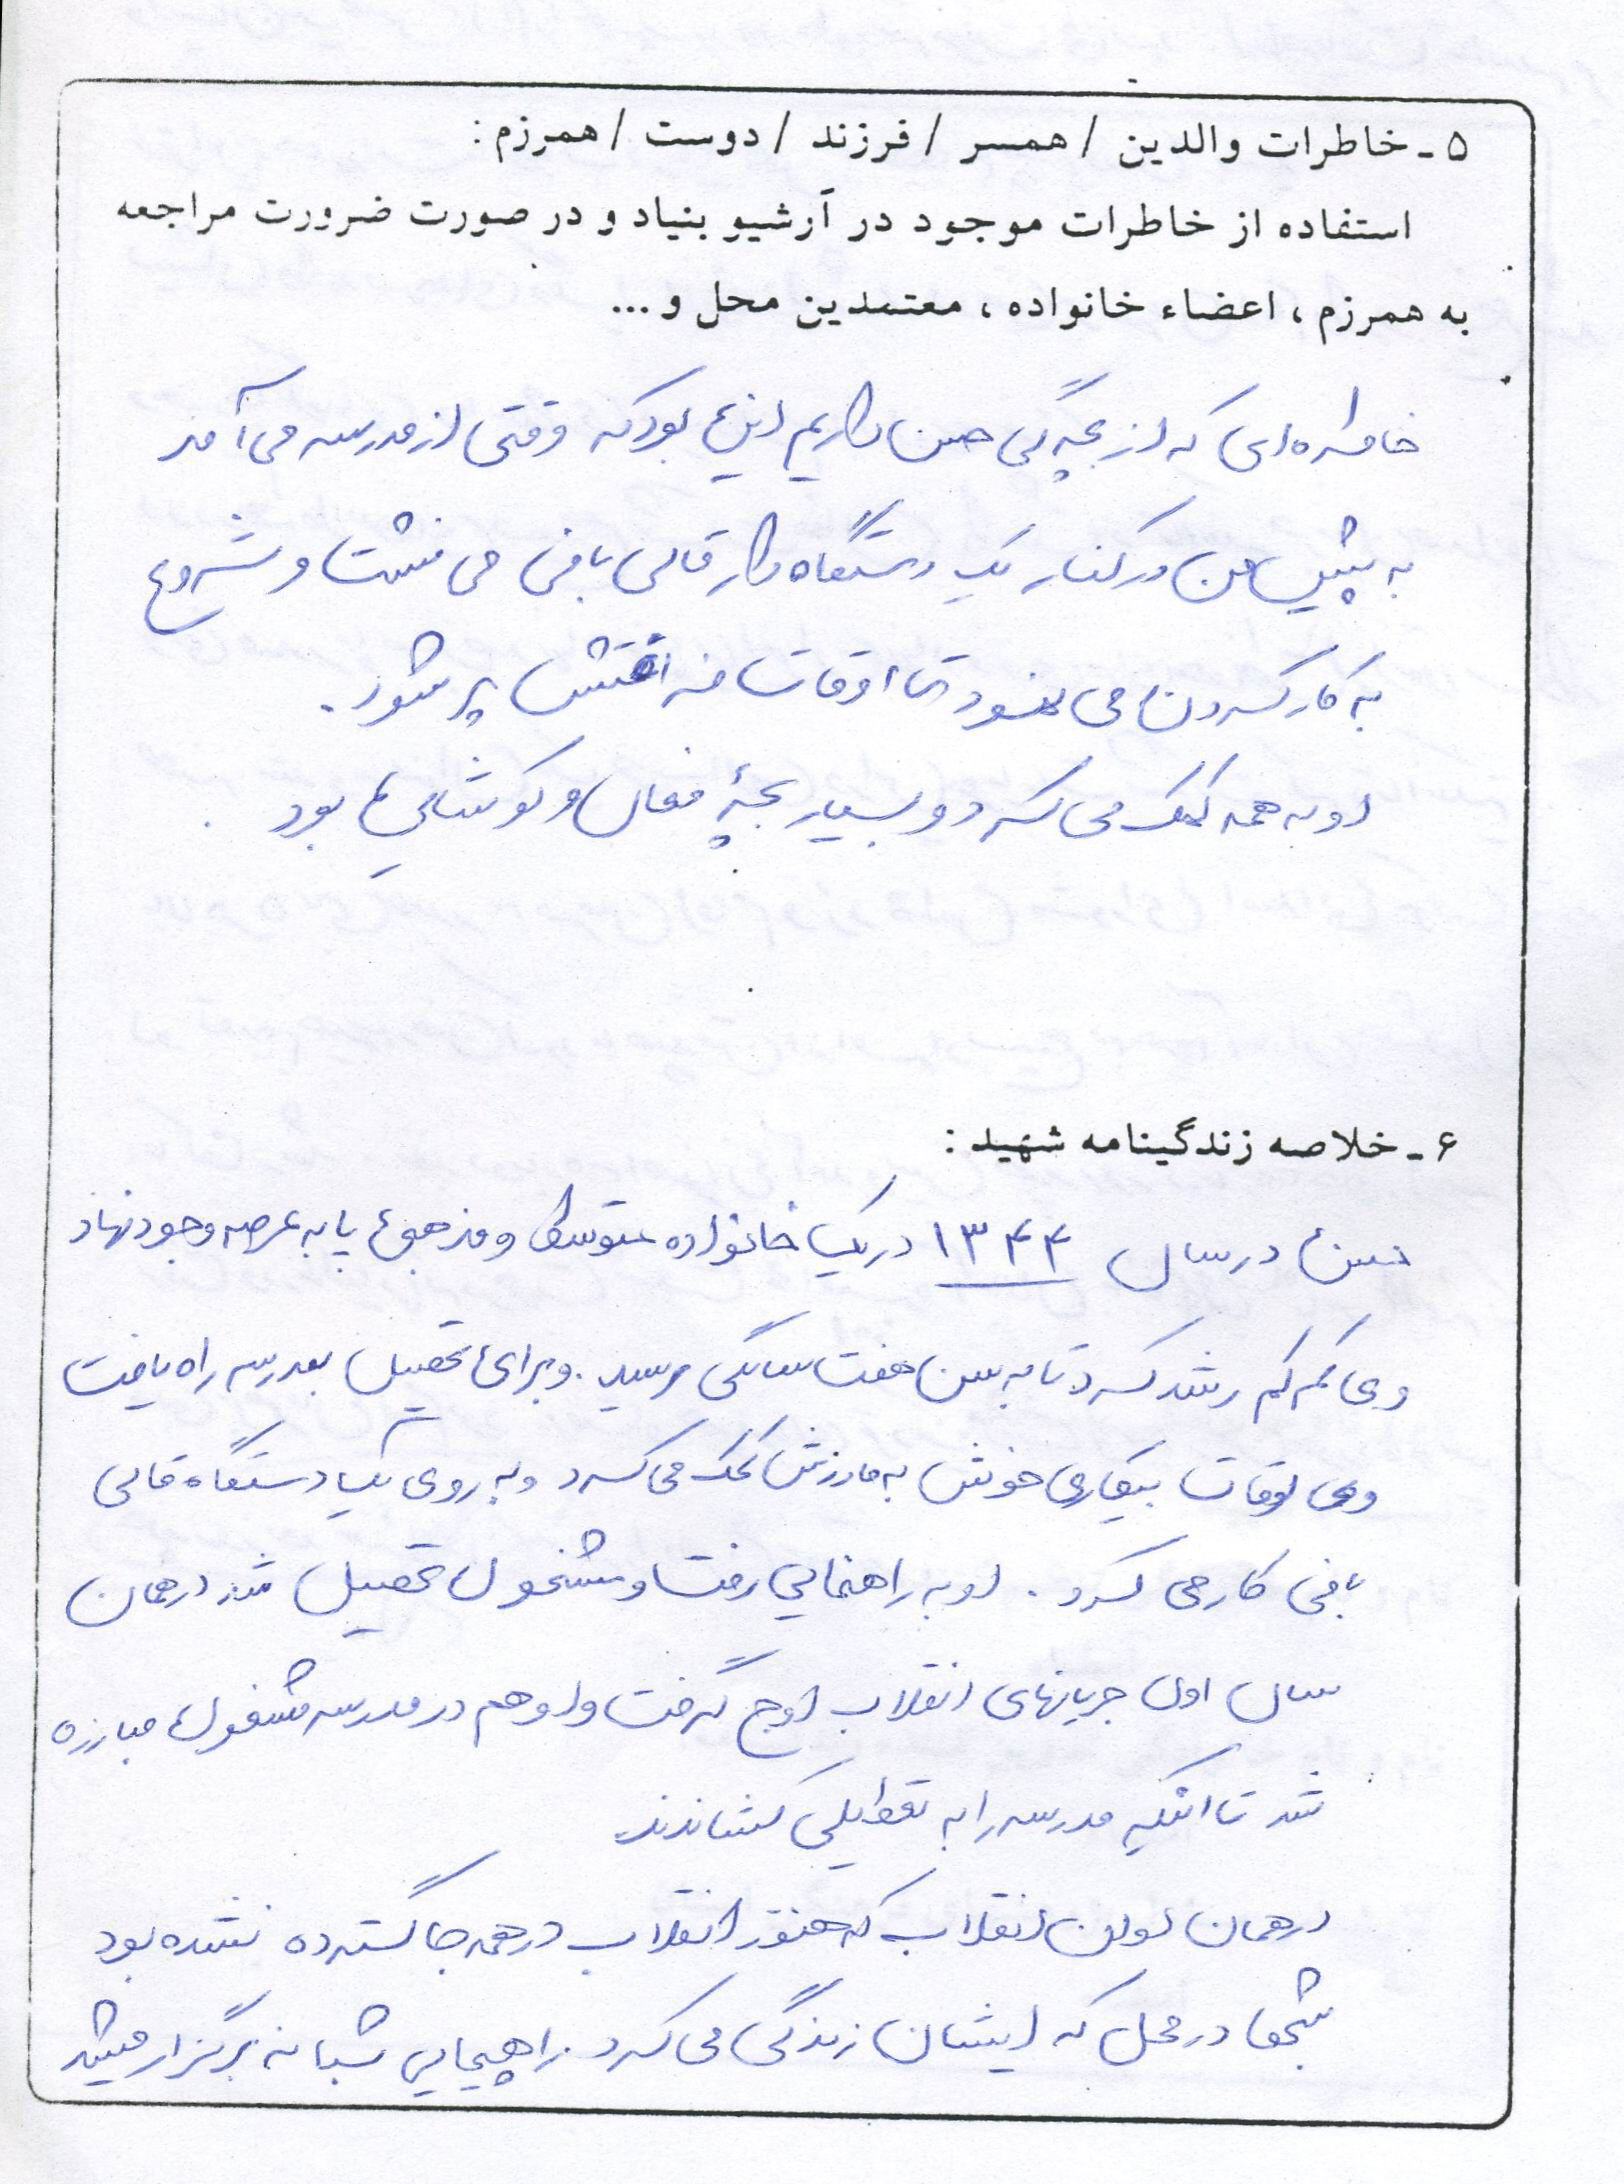 ۵ - خاطرات والدین / همسر / فرزند / دوست / همرزم :
استفاده از خاطرات موجود در آرشیو بنیاد و در صورت ضرورت مراجعه
به همرزم ، اعضاء خانواده ، معتمدین محل و ...
خاطره‌ای که از بچه گی حسن داریم این بود که وقتی از مدرسه می آمد
به پیش من در کنار یک دستگاه دار قالی بافی می نشست و شروع
به کار کردن می نمود تا اوقات فراغتش پر شود .
او به همه کمک می کرد و بسیار بچهٔ فعال و کوشایی بود
۶ - خلاصه زندگینامه شهید :
حسن در سال ۱۳۴۴ در یک خانواده متوسط و مذهبی پا به عرصه وجود نهاد
وی کم کم رشد کرد تا به سن هفت سالگی رسید . و برای تحصیل بمدرسه راه یافت
وی اوقات بیکاری خوش به مادرش کمک می کرد و به روی یک دستگاه قالی
بافی کار می کرد . او به راهنمایی رفت و مشغول تحصیل شد در همان
سال اول جریانهای انقلاب اوج گرفت و او هم در مدرسه مشغول مبارزه
شد تا اینکه مدرسه را به تعطیلی کشاندند
در همان اولین انقلاب که هنوز انقلاب در همه جا گسترده نشده بود
شبها در محل که ایشان زندگی می کرد راهپیمایی شبانه برگزار میشد